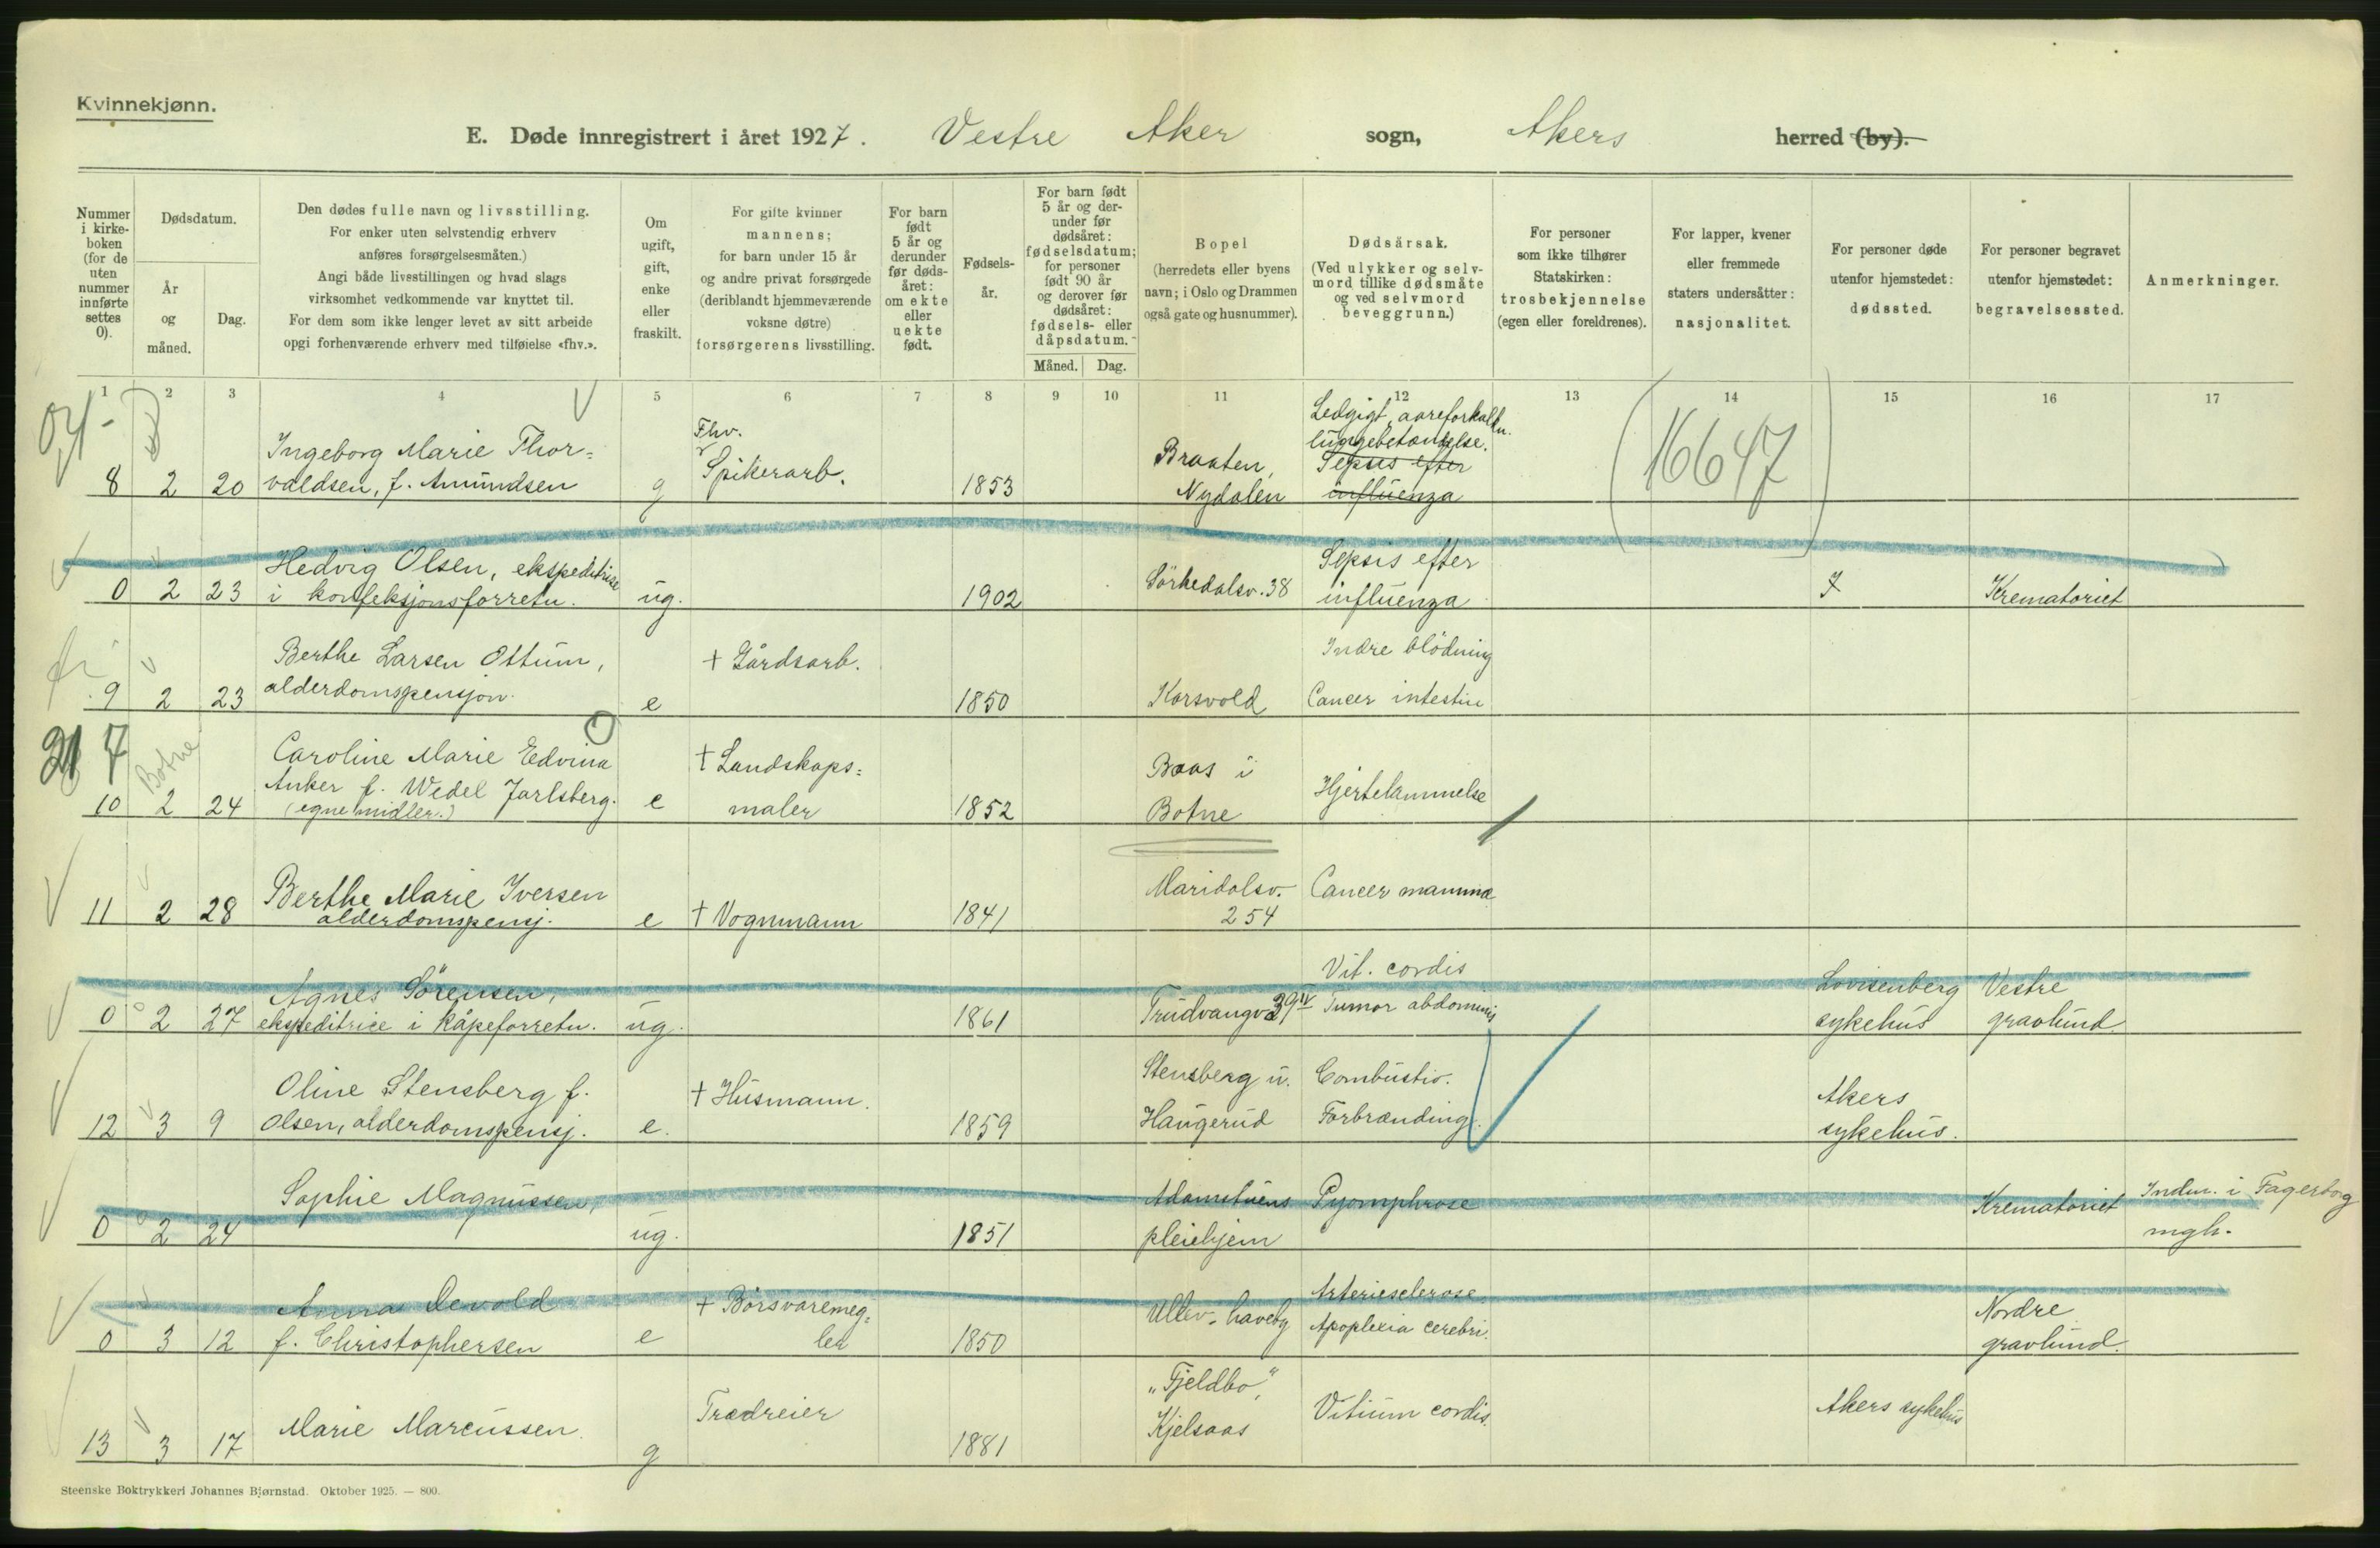 Kvinnekjønn.
E. Døde innregistrert i året 1927. Vestre Aker sogn, Akers herred (by).
Nummer i kirke-boken (for de uten nummer innførte settes 0).
Dødsdatum.
År og måned.
Dag.
Den dødes fulle navn og livsstilling.
For enker uten selvstendig erhverv
anføres forsørgelsesmåten.)
Angi både livsstillingen og hvad slags
virksomhet vedkommende var knyttet til.
For dem som ikke lenger levet av sitt arbeide
opgi forhenværende erhverv med tilføielse «fhv.».
Om ugift, gift, enke eller fraskilt.
For gifte kvinner
mannens;
for barn under 15 år
og andre privat forsørgede
(deriblandt hjemmeværende
voksne døtre)
forsørgerens livsstilling.
For barn født 5 år og derunder før døds-året: om ekte eller uekte født.
Fødsels-år.
For barn født 5 år og der-under før dødsåret: fødselsdatum; for personer født 90 år og derover før dødsåret: fødsels- eller dåpsdatum.
Måned.
Dag.
Bopel
(herredets eller byens
navn; i Oslo og Drammen
også gate og husnummer).
Dødsårsak.
(Ved ulykker og selv-
mord tillike dødsmåte
og ved selvmord
beveggrunn.)
For personer
som ikke tilhører
Statskirken:
trosbekjennelse
(egen eller foreldrenes).
For lapper, kvener
eller fremmede
staters undersåtter:
nasjonalitet.
For personer døde
utenfor hjemstedet:
dødssted.
For personer begravet
utenfor hjemstedet:
begravelsessted.
Anmerkninger.
1 2 3 4 5 6 7 8 9 10 11 12 13 14 15 16 17
Ledgigt, aareforkalkn.
Fhv. lungebetændelse.
Ingeborg Marie Thor= Spikerarb. Braaten, Sepsis efter 16647
8 2 20 valdsen, f. Amundsen g 1853 Nydalen influenza
Hedvig Olsen, ekspeditrise Sörkedalsv. 38 Sepsis efter
0 2 23 i konfeksjonsforretn. ug. 1902 influenza Krematoriet
Berthe Larsen Ottum, + Gårdsarb. Indre blödning
9 2 23 alderdomspensjon. e 1850 Korsvold Cancer intestin
Botne
Caroline Marie Edvina + Landskaps= Baas i
Anker f. Wedel Jarlsberg. Hjertelammelse
10 2 24 (egne midler.) e maler 1852 Botne
Berthe Marie Iversen Maridalsv. Cancer mamma
11 2 28 alderdomspensj. e + Vognmann 1841 254
Agnes Sörensen, Vit. cordis Lovisenberg Vestre
0 2 27 ekspeditrice i kåpeforretn. ug. 1861 Trudvangv. 39 IV Tumor abdominis sykehus gravlund
Oline Stensberg f. + Husmann. Stensberg u. Combustio. Akers
12 3 9 Olsen, alderdomspensj. e. 1859 Haugerud Forbrænding. sykehus.
Sophie Magnussen, Adamstuens Pyomphrose Krematoriet Indm. i Fagerborg
0 2 24 ug. 1851 pleiehjem mgh.
Anna Devold + Börsvaremeg= Ullev. haveby Arteriesclerose Nordre
0 3 12 f. Christophersen e ler 1850 Apoplexia cerebri. gravlund.
Marie Marcussen. Trædreier „Fjeldbo", Vitium cordis. Akers sykehus
13 3 17 g 1881 Kjelsaas
Steenske Boktrykkeri Johannes Bjørnstad. Oktober 1925. — 800.